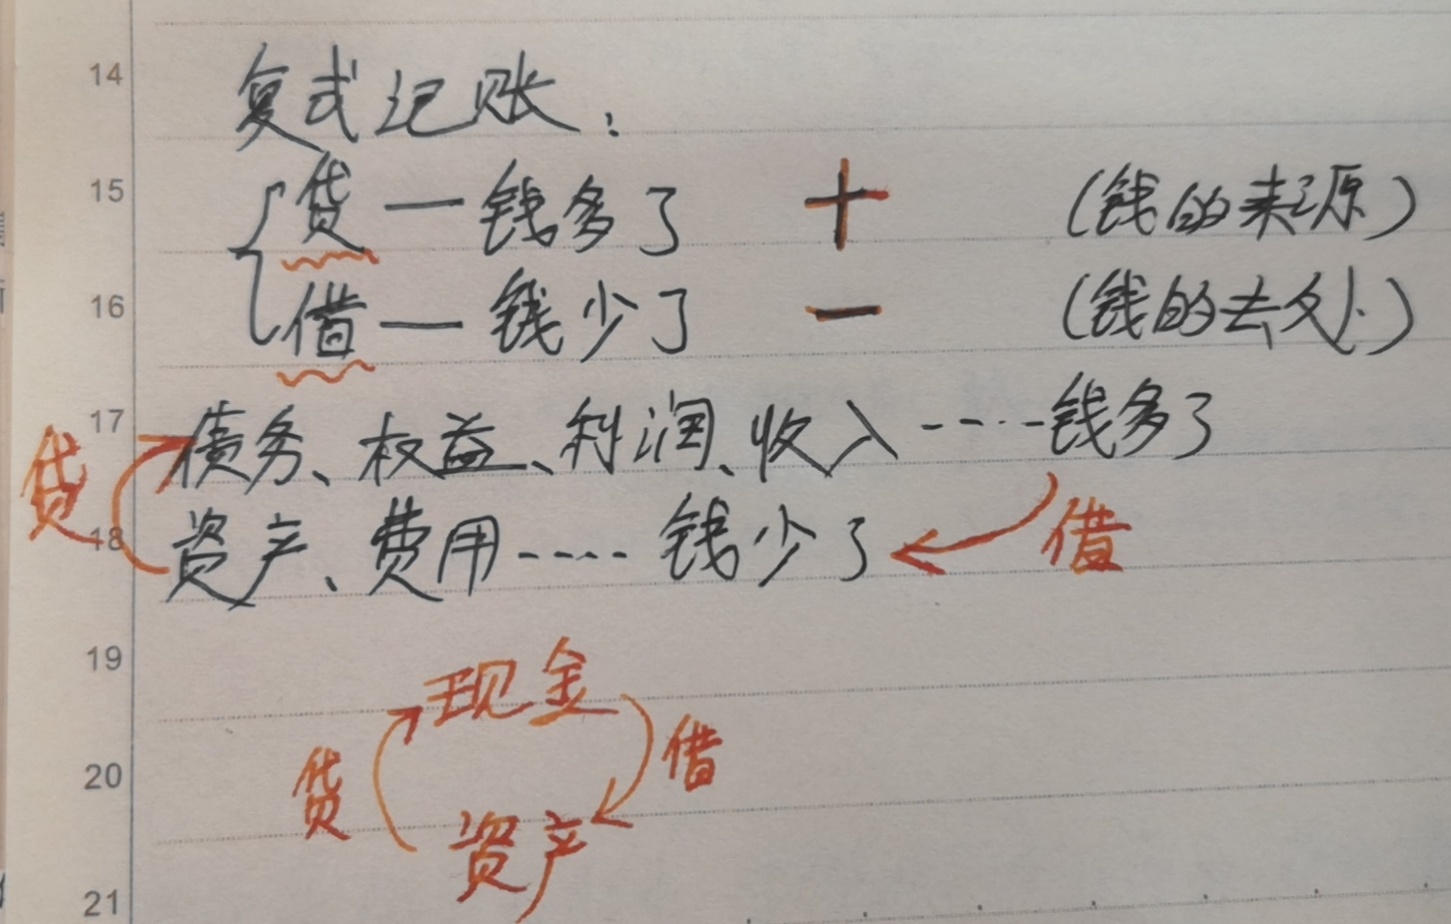 14 复式记账：
15 贷 — 钱多了 + (钱的来源)
16 借 — 钱少了 — (钱的去处)
17 债务、权益、利润、收入 ---- 钱多了
贷
18 资产、费用 ---- 钱少了 借
19 现金
20 贷 借
资产
21